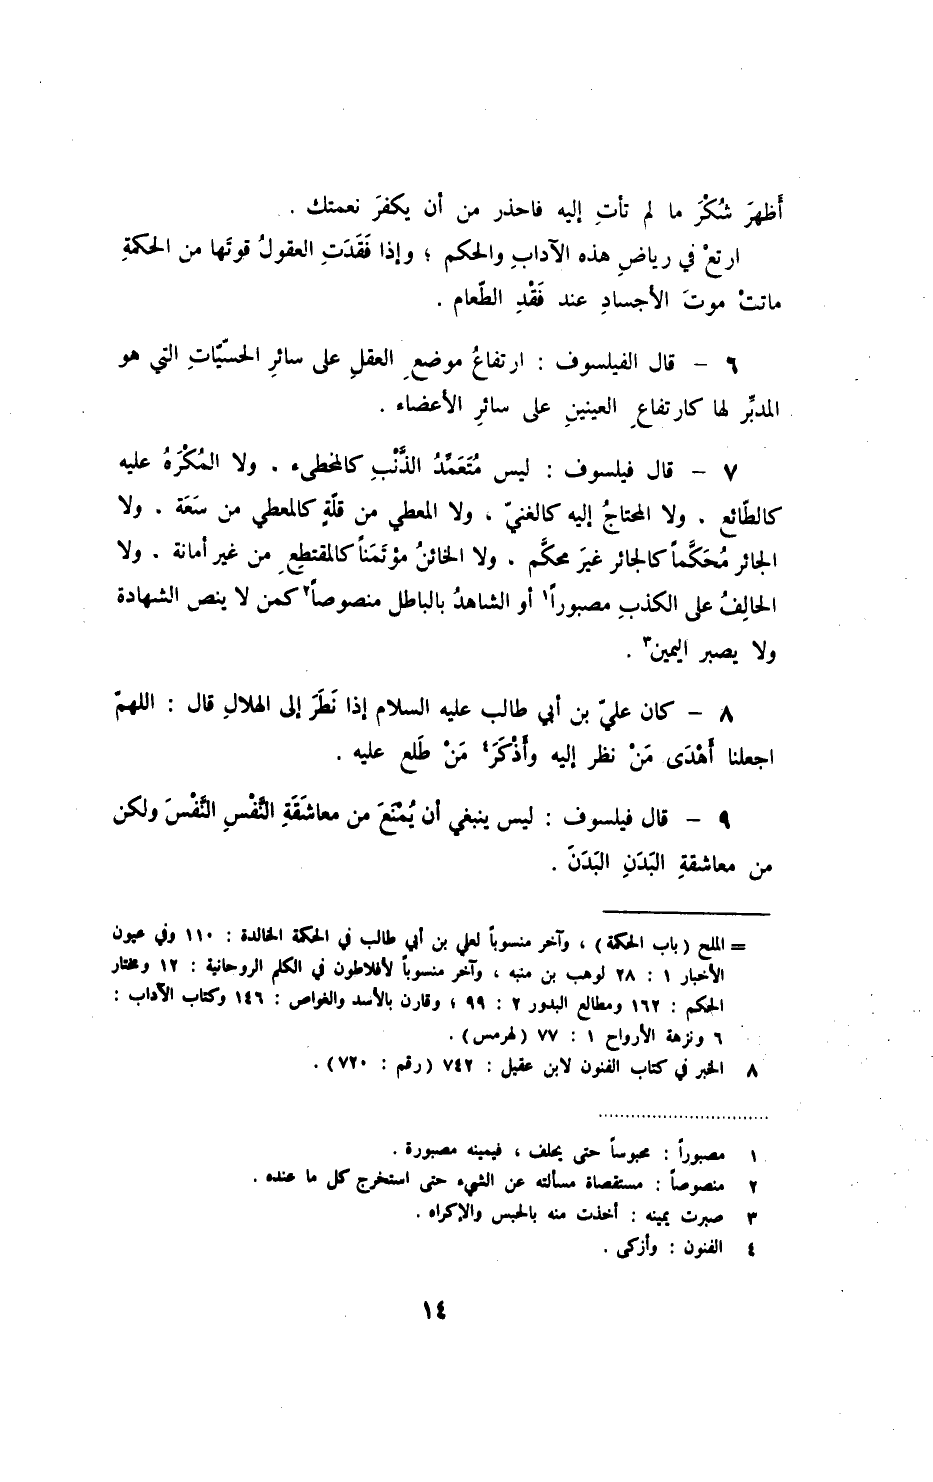 أَظهرَ شُكْرَ ما لم تأتِ إليه فاحذر من أن يكفرَ نعمتك .
ارتعْ في رياضِ هذه الآدابِ والحكم ؛ وإذا فَقَدَتِ العقولُ قوتَها من الحكمةِ
ماتتْ موتَ الأجسادِ عند فَقْدِ الطّعام .
٦ – قال الفيلسوف : ارتفاعُ موضعِ العقلِ على سائرِ الحسّيّاتِ التي هو
المدبِّر لها كارتفاعِ العينينِ على سائرِ الأعضاء .
٧ – قال فيلسوف : ليس مُتَعَمِّدُ الذَّنْبِ كالمخطىء . ولا المُكْرَهُ عليه
كالطّائع . ولا المحتاجُ إليه كالغنيّ ، ولا المعطي من قلّةٍ كالمعطي من سَعَة . ولا
الجائر مُحَكَّماً كالجائر غيرَ محكَّم . ولا الخائنُ مؤتَمَناً كالمقتطِعِ من غير أمانة . ولا
الحالِفُ على الكذبِ مصبوراً١ أو الشاهدُ بالباطل منصوصاً٢ كمن لا ينص الشهادة
ولا يصبر اليمين٣ .
٨ – كان عليّ بن أبي طالب عليه السلام إذا نَظَرَ إلى الهلالِ قال : اللهمّ
اجعلنا أَهْدَى مَنْ نظر إليه وأَذْكَرَ٤ مَنْ طَلع عليه .
٩ – قال فيلسوف : ليس ينبغي أن يُمْنَعَ من معاشَقَةِ النَّفْسِ النَّفْسَ ولكن
من معاشقةِ البَدَنِ البَدَنَ .
= الملح (باب الحكمة) ، وآخر منسوباً لعلي بن أبي طالب في الحكمة الخالدة : ١١٠ وفي عيون
الأخبار ١ : ٢٨ لوهب بن منبه ، وآخر منسوباً لأفلاطون في الكلم الروحانية : ١٢ ومختار
الحكم : ١٦٢ ومطالع البدور ٢ : ٩٩ ؛ وقارن بالأسد والغواص : ١٤٦ وكتاب الآداب :
٦ ونزهة الأرواح ١ : ٧٧ (لهرمس) .
٨ الخبر في كتاب الفنون لابن عقيل : ٧٤٢ (رقم : ٧٢٠) .
١ مصبوراً : محبوساً حتى يحلف ، فيمينه مصبورة .
٢ منصوصاً : مستقصاة مسألته عن الشيء حتى استخرج كل ما عنده .
٣ صبرت يمينه : أخذت منه بالحبس والإكراه .
٤ الفنون : وأزكى .
١٤